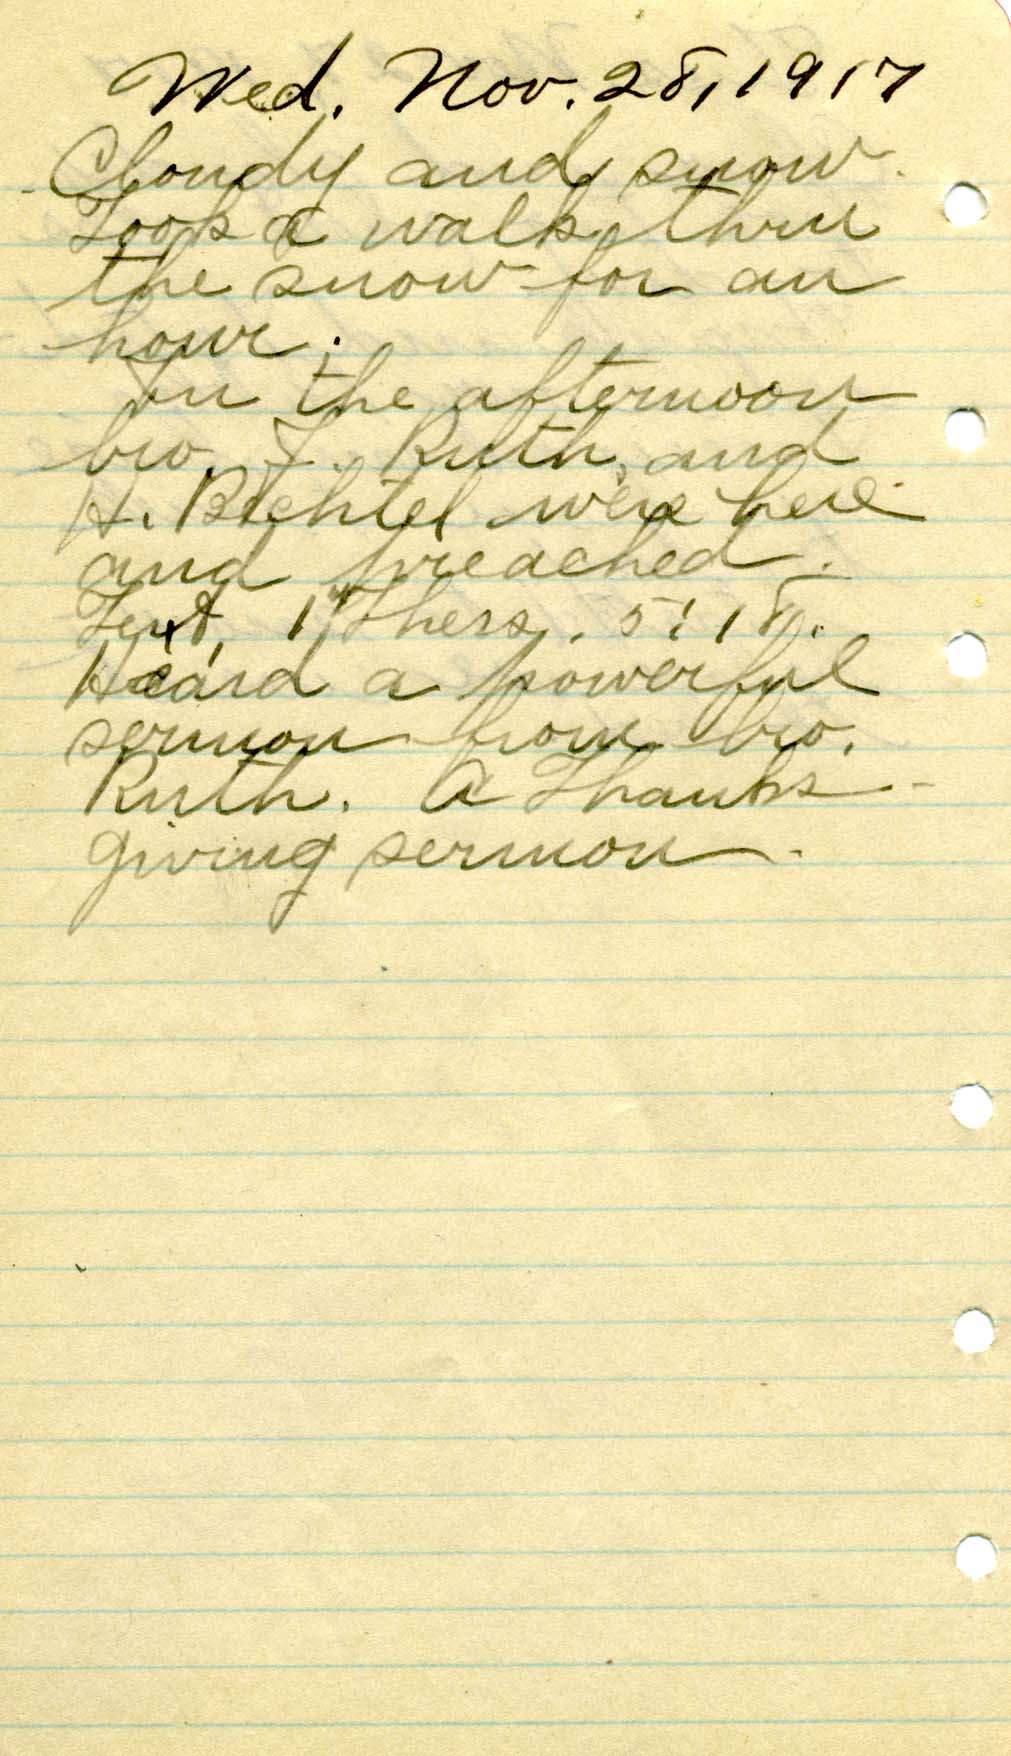 Wed. Nov. 28, 1917
Cloudy and snow.
Took a walk thru
the snow for an
hour.
In the afternoon
bro. J. Ruth, and
A. Bechtel were here
and preached.
Text, 1 Thess. 5:18.
Heard a powerful
sermon from bro.
Ruth. A Thanks-
giving sermon.